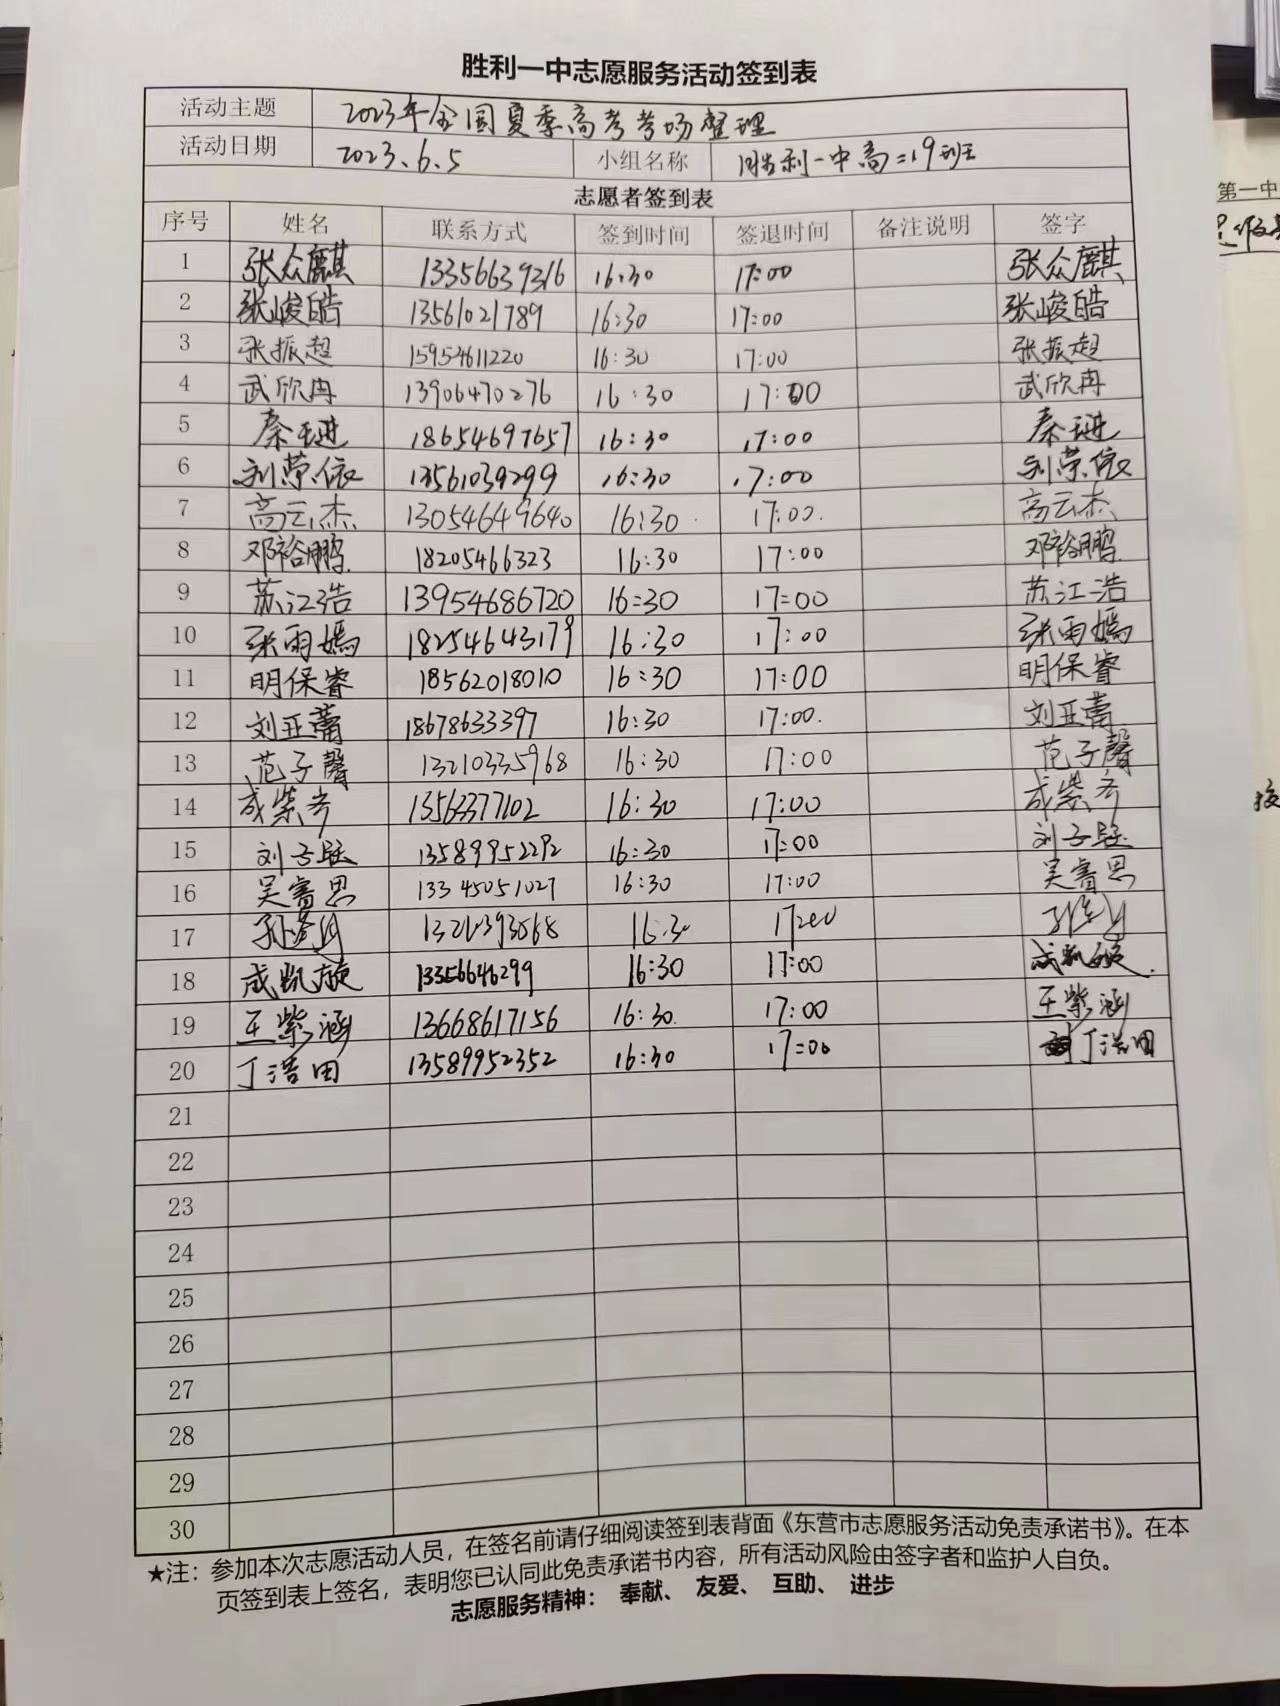 胜利一中志愿服务活动签到表
活动主题 2023年全国夏季高考考场整理
活动日期 2023.6.5 小组名称 胜利一中高二19班
志愿者签到表
序号 姓名 联系方式 签到时间 签退时间 备注说明 签字
1 张众麒 13356639316 16:30 17:00 张众麒
2 张峻皓 13561021789 16:30 17:00 张峻皓
3 张振超 15954611220 16:30 17:00 张振超
4 武欣冉 13906470276 16:30 17:00 武欣冉
5 秦琎 18654697657 16:30 17:00 秦琎
6 刘荣依 13561039299 16:30 17:00 刘荣依
7 高云杰 13054649640 16:30 17:00. 高云杰
8 邓裕鹏 18205466323 16:30 17:00 邓裕鹏
9 苏江浩 13954686720 16:30 17:00 苏江浩
10 张雨嫣 18254643179 16:30 17:00 张雨嫣
11 明保睿 18562018010 16:30 17:00 明保睿
12 刘亚蕾 18678633397 16:30 17:00. 刘亚蕾
13 范子馨 13210335968 16:30 17:00 范子馨
14 成紫岑 13563377102 16:30 17:00 成紫岑
15 刘子 13589952292 16:30 17:00 刘子
16 吴睿思 13345051027 16:30 17:00 吴睿思
17 孙 16:30 17:00 孙
18 成凯旋 13356646299 16:30 17:00 成凯旋.
19 王紫涵 13668617156 16:30. 17:00 王紫涵
20 丁浩田 13589952352 16:30 17:00 丁浩田
21
22
23
24
25
26
27
28
29
30
★注：参加本次志愿活动人员，在签名前请仔细阅读签到表背面《东营市志愿服务活动免责承诺书》。在本
页签到表上签名，表明您已认同此免责承诺书内容，所有活动风险由签字者和监护人自负。
志愿服务精神： 奉献、 友爱、 互助、 进步
第一中